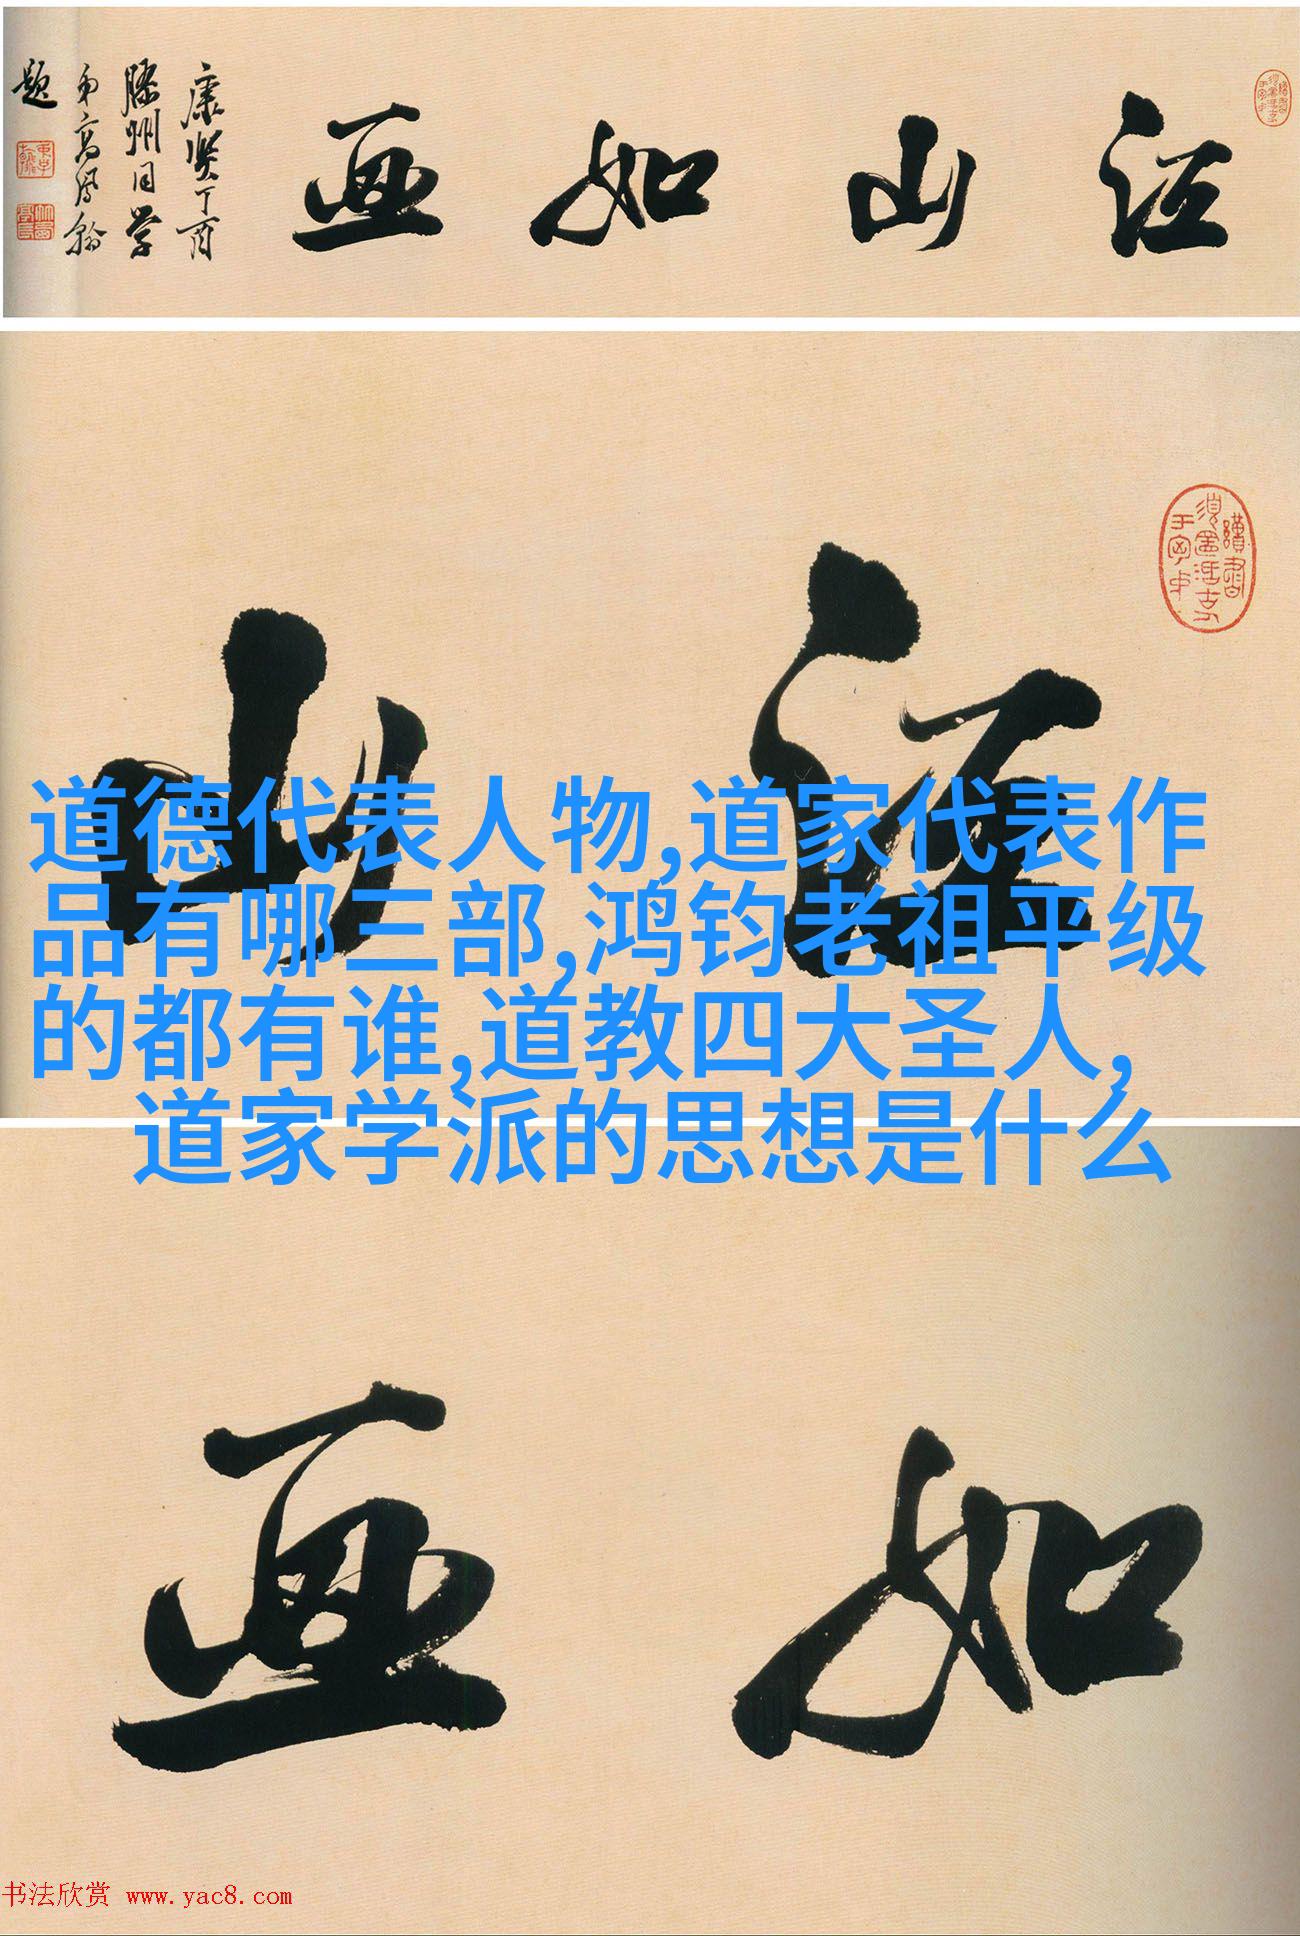 江山如画
康熙丁酉
滕州同学
弟高凤翰
题
道德代表人物,道家代表作
品有哪三部,鸿钧老祖平级
的都有谁,道教四大圣人,
道家学派的思想是什么
山 江
画 如
书法欣赏 www.yac8.com